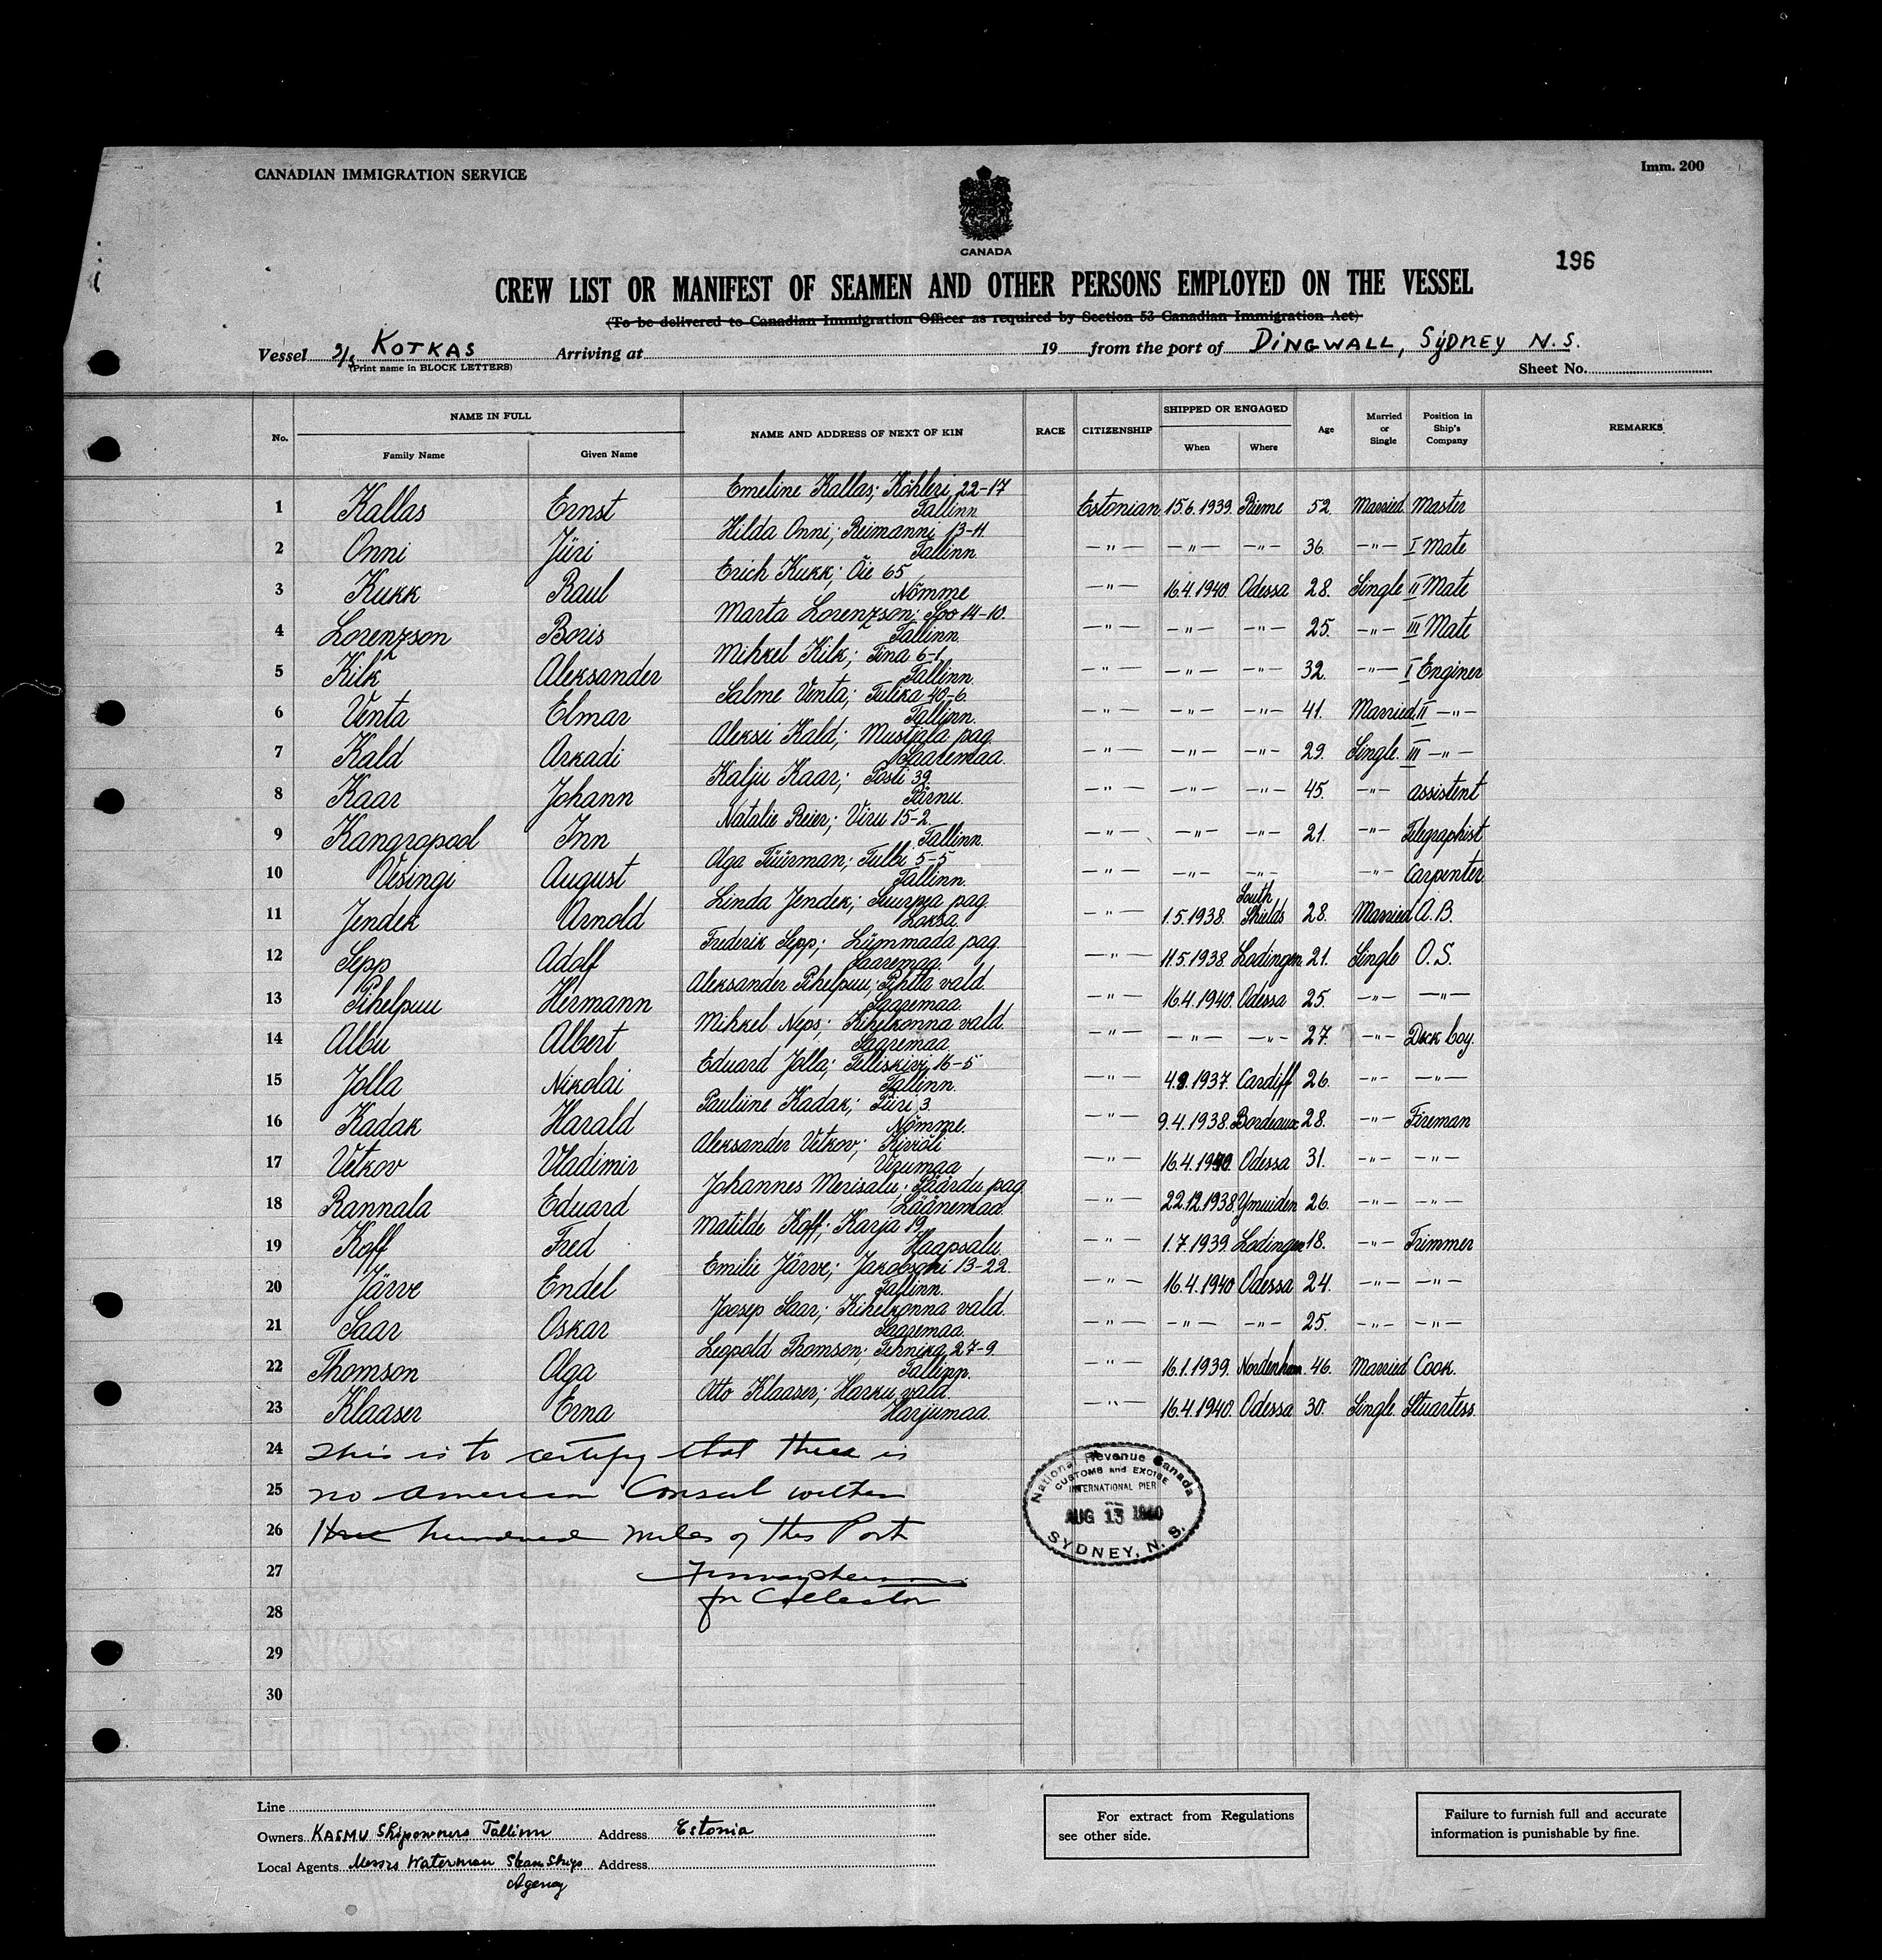 CANADIAN IMMIGRATION SERVICE
Imm. 200
CANADA
196
CREW LIST OR MANIFEST OF SEAMEN AND OTHER PERSONS EMPLOYED ON THE VESSEL
(To be delivered to Canadian Immigration Officer as required by Section 53 Canadian Immigration Act)
Vessel S/S KOTKAS Arriving at 19 from the port of DINGWALL, SYDNEY N.S.
(Print name in BLOCK LETTERS)
Sheet No.
No. NAME IN FULL Family Name Given Name NAME AND ADDRESS OF NEXT OF KIN RACE CITIZENSHIP SHIPPED OR ENGAGED When Where Age Married or Single Position in Ship's Company REMARKS
1 Kallas Ernst Emeline Kallas; Köhleri 22-17 Tallinn Estonian 15.6.1939. Rieme 52. Married. Master
2 Onni Jüri Hilda Onni; Reimanni 13-11 Tallinn. —"— —"— —"— 36. —"— I Mate
3 Kukk Raul Erich Kukk; Õie 65 Nõmme —"— 16.4.1940. Odessa 28. Single II Mate
4 Lorenzson Boris Marta Lorenzson; Soo 14-10. Tallinn. —"— —"— —"— 25. —"— III Mate
5 Kilk Aleksander Mihkel Kilk; Tina 6-1 Tallinn. —"— —"— —"— 32. —"— I Enginer
6 Venta Elmar Salme Venta; Tulika 40-6. Tallinn. —"— —"— —"— 41. Married. II —"—
7 Kald Arkadi Aleksei Kald; Mustjala pag. Saaremaa. —"— —"— —"— 29. Single. III —"—
8 Kaar Johann Kalju Kaar; Posti 39. Pärnu. —"— —"— —"— 45. —"— assistent
9 Kangropool Inn Natalie Reier; Viru 15-2. Tallinn. —"— —"— —"— 21. —"— Telegraphist
10 Vesingi August Olga Tüürman; Tulbi 5-5 Tallinn. —"— —"— —"— —"— Carpenter
11 Jendek Arnold Linda Jendek; Suurpea pag. Loksa. —"— 1.5.1938. South Shields 28. Married A.B.
12 Sepp Adolf Frederik Sepp; Lümmada pag. Saaremaa. —"— 11.5.1938. Lodingen. 21. Single O.S.
13 Pihelpuu Hermann Aleksander Pihelpuu; Pihtla vald. Saaremaa. —"— 16.4.1940. Odessa 25. —"— —"—
14 Albu Albert Mihkel Neps; Kihelkonna vald. Saaremaa. —"— —"— —"— 27. —"— Deck boy.
15 Jolla Nikolai Eduard Jolla; Telliskivi 16-5 Tallinn. —"— 4.9.1937. Cardiff 26. —"— —"—
16 Kadak Harald Pauliine Kadak; Türi 3. Nõmme. —"— 9.4.1938. Bordeaux 28. —"— Fireman
17 Vetkov Vladimir Aleksander Vetkov; Kiviõli Virumaa —"— 16.4.1940. Odessa 31. —"— —"—
18 Rannala Eduard Johannes Merisalu; Päärdu pag. Läänemaa. —"— 22.12.1938. Ymuiden 26. —"— —"—
19 Koff Fred Matilde Koff; Karja 19. Haapsalu. —"— 1.7.1939. Lodingen 18. —"— Trimmer
20 Järve Endel Emilie Järve; Jakobsoni 13-22. Tallinn. —"— 16.4.1940 Odessa 24. —"— —"—
21 Saar Oskar Joosep Saar; Kihelkonna vald. Saaremaa. —"— —"— —"— 25. —"— —"—
22 Thomson Olga Leopold Thomson; Tehnika 27-9. Tallinn. —"— 16.1.1939. Nordenham. 46. Married Cook.
23 Klaaser Erna Otto Klaaser; Harku vald. Harjumaa. —"— 16.4.1940. Odessa 30. Single. Stuartess.
24 This is to certify that there is
25 no American Consul within
26 hundred miles of this Port
27
for Collector
28
29
30
National Revenue Canada
CUSTOMS and EXCISE
INTERNATIONAL PIER
AUG 13 1940
SYDNEY, N. S.
Line
Owners KASMU Shipowners Tallinn Address Estonia
Local Agents Messrs Waterman Steam Ships Agency Address
For extract from Regulations see other side.
Failure to furnish full and accurate information is punishable by fine.